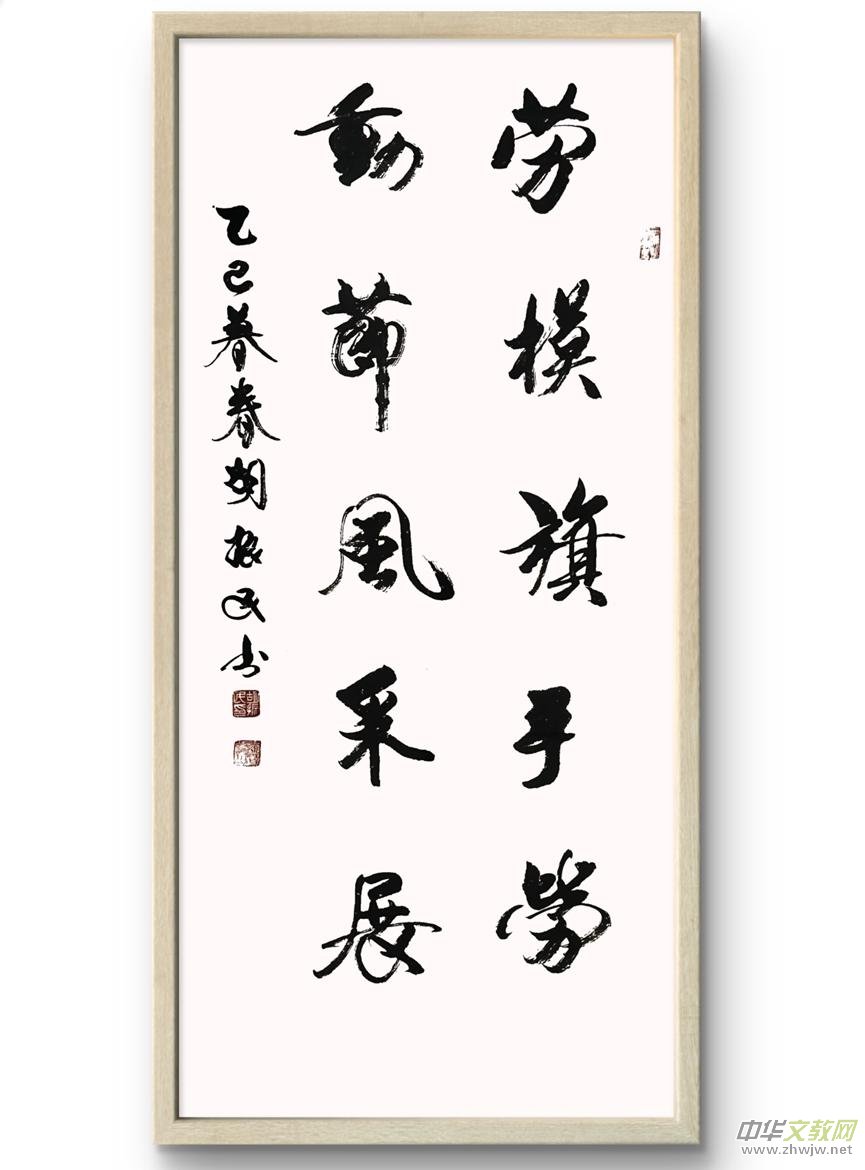 劳模旗手勞
動節風采展
乙巳暮春胡振民书
中华文教网
www.zhwjw.net